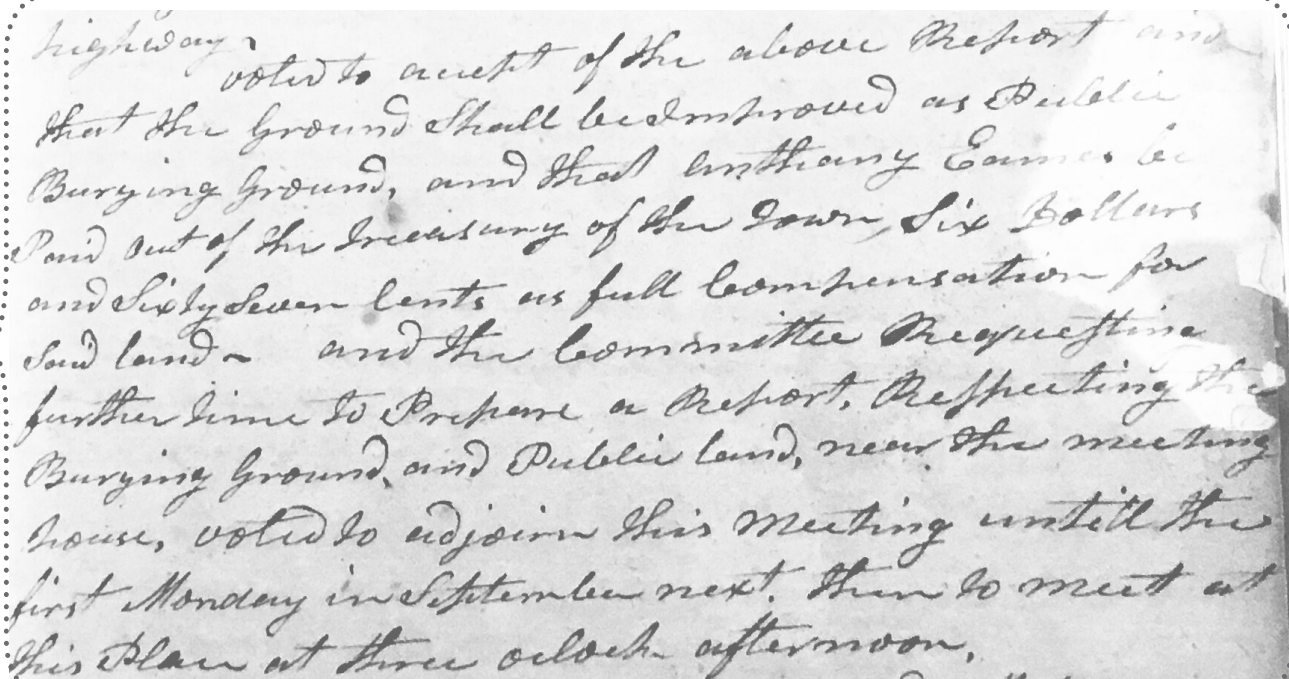 highway
voted to accept of the above Report and
that the Ground Shall be Improved as Public
Burying Ground, and that Anthony Eames be
Paid out of the Treasury of the Town, Six Dollars
and Sixty Seven Cents as full Compensation for
Said land ~ and the Committee Requesting
further time to Prepare a Report, Respecting the
Burying Ground, and Public land, near the meeting
house, voted to adjoirn this Meeting untill the
first Monday in September next. then to meet at
this Place at three oclock afternoon,